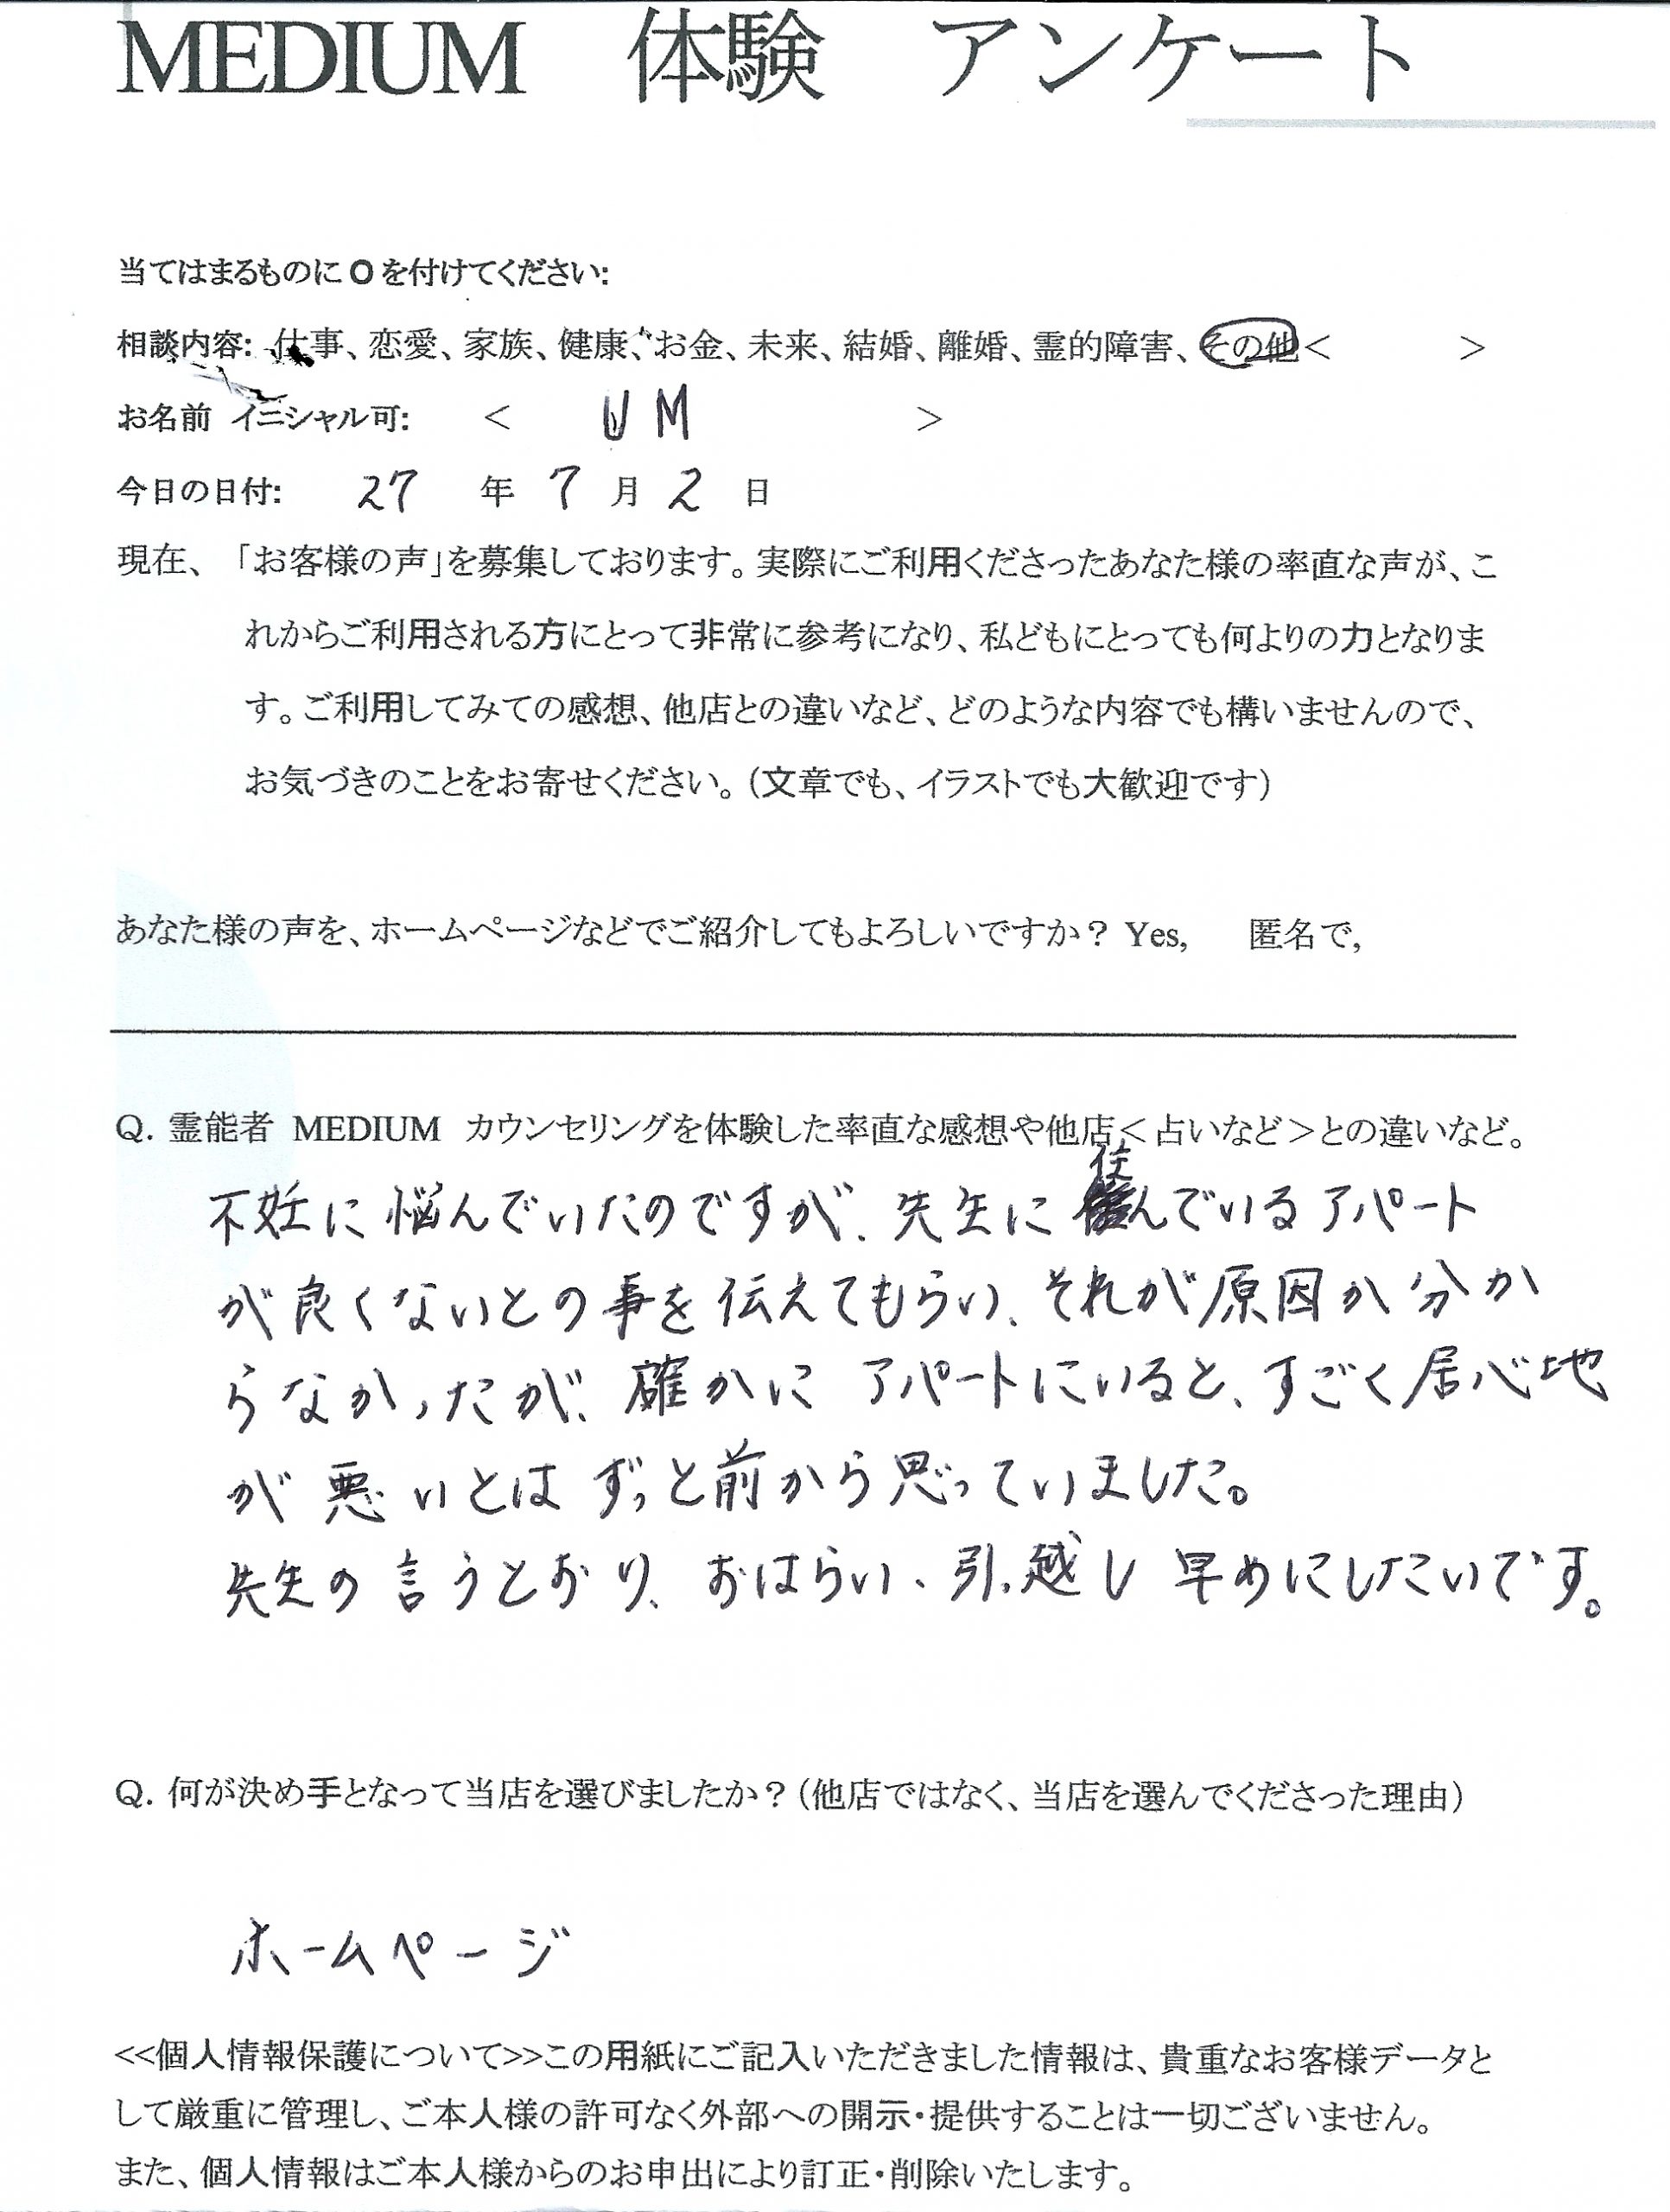 MEDIUM 体験 アンケート
当てはまるものに O を付けてください:
相談内容: 仕事、恋愛、家族、健康、お金、未来、結婚、離婚、霊的障害、その他< >
お名前 イニシャル可: < U M >
今日の日付: 27 年 7 月 2 日
現在、「お客様の声」を募集しております。実際にご利用くださったあなた様の率直な声が、こ
れからご利用される方にとって非常に参考になり、私どもにとっても何よりの力となりま
す。ご利用してみての感想、他店との違いなど、どのような内容でも構いませんので、
お気づきのことをお寄せください。(文章でも、イラストでも大歓迎です)
あなた様の声を、ホームページなどでご紹介してもよろしいですか? Yes, 匿名で,
Q. 霊能者 MEDIUM カウンセリングを体験した率直な感想や他店<占いなど>との違いなど。
不妊に悩んでいたのですが、先生に住んでいるアパート
が良くないとの事を伝えてもらい、それが原因か分か
らなかったが、確かに アパートにいると、すごく居心地
が悪いとは ずっと前から思っていました。
先生の言うとおり、おはらい、引越し 早めにしたいです。
Q. 何が決め手となって当店を選びましたか?(他店ではなく、当店を選んでくださった理由)
ホームページ
<<個人情報保護について>>この用紙にご記入いただきました情報は、貴重なお客様データと
して厳重に管理し、ご本人様の許可なく外部への開示・提供することは一切ございません。
また、個人情報はご本人様からのお申出により訂正・削除いたします。